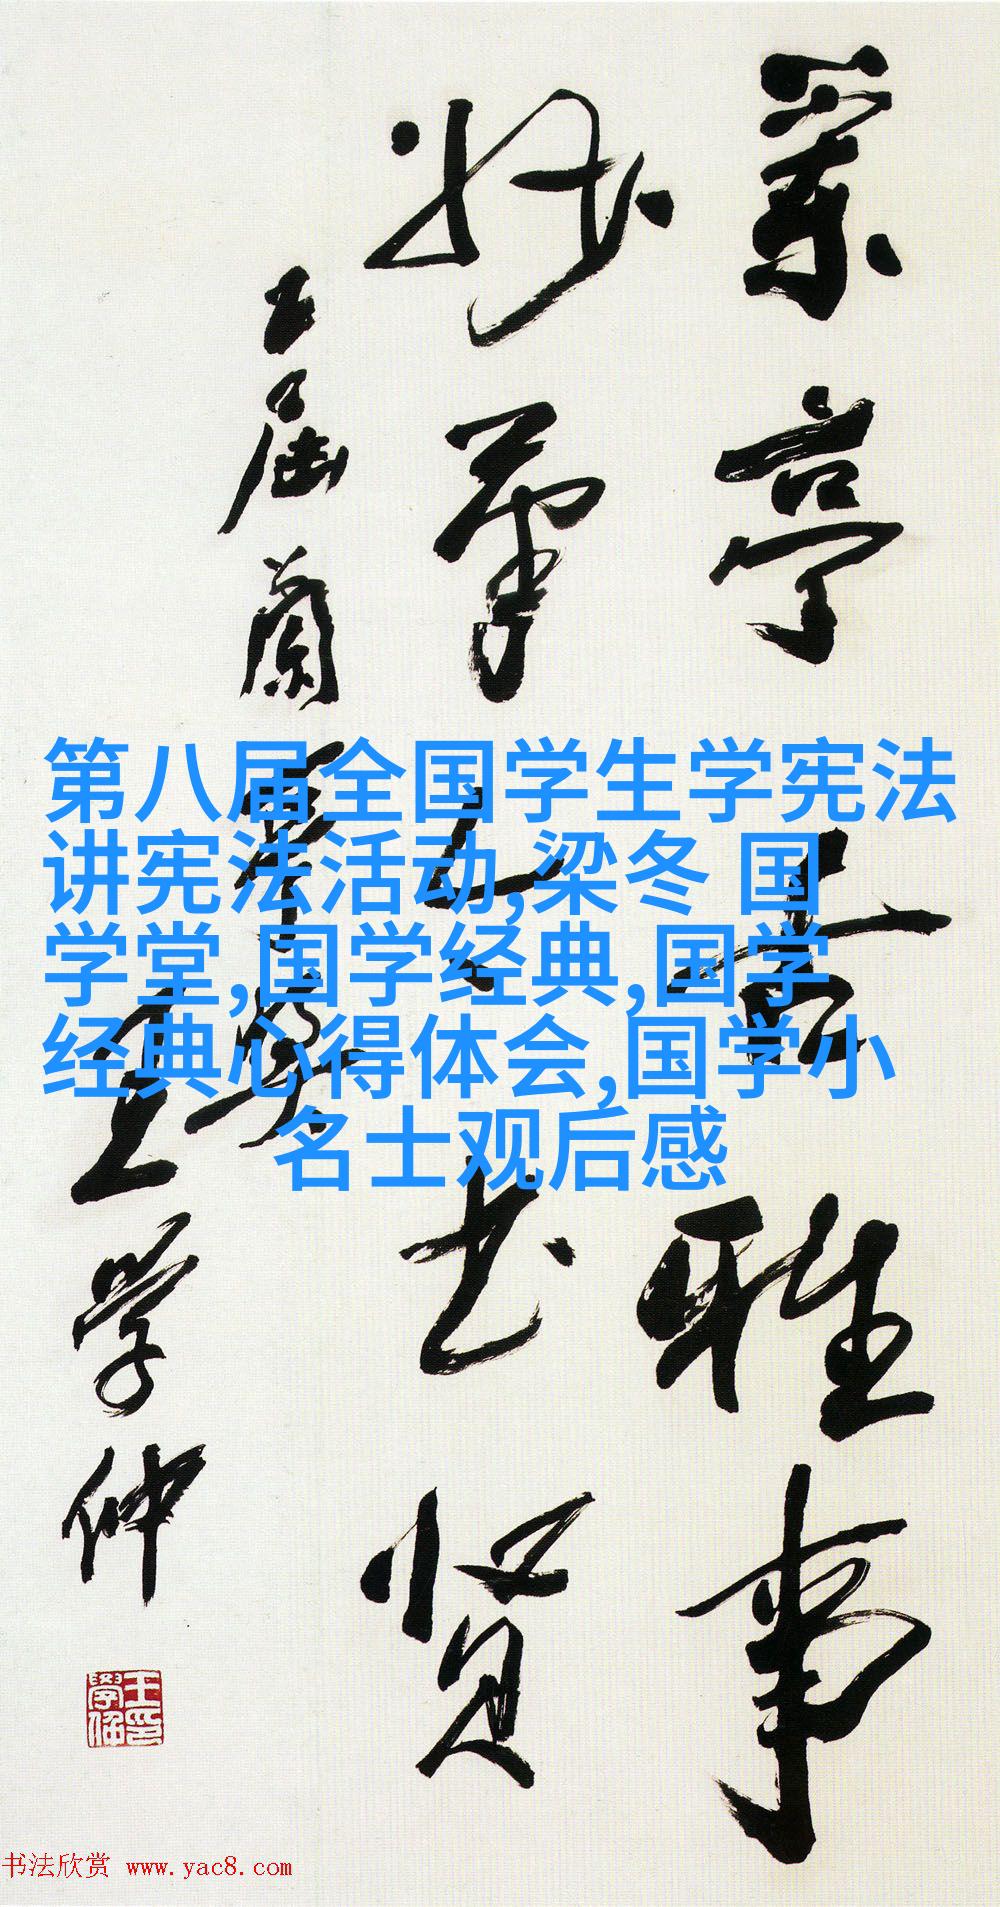 第八届全国学生学宪法
讲宪法活动,梁冬 国
学堂,国学经典,国学
经典心得体会,国学小
名士观后感
亭 雅事
妙笔 书贤
届蘭亭奖
王学仲
书法欣赏 www.yac8.com